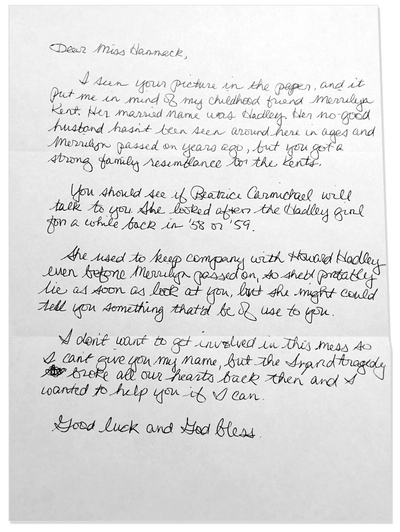 Dear Miss Hammack,
I seen your picture in the paper, and it
put me in mind of my childhood friend Merrilyn
Kent. Her married name was Hadley. Her no-good
husband hasn't been seen around here in ages and
Merrilyn passed on years ago, but you got a
strong family resemblance to the Kents.
You should see if Beatrice Carmichael will
talk to you She looked after the Hadley girl
for a while back in '58 or '59.
She used to keep company with Howard Hadley
even before Merrilyn passed on, so she'd probably
lie as soon as look at you, but she might could
tell you something that'd be of use to you.
I don't want to get involved in this mess so
I can't give you my name, but the tragedy
broke all our hearts back then and I
wanted to help you if I can.
Good luck and God bless.